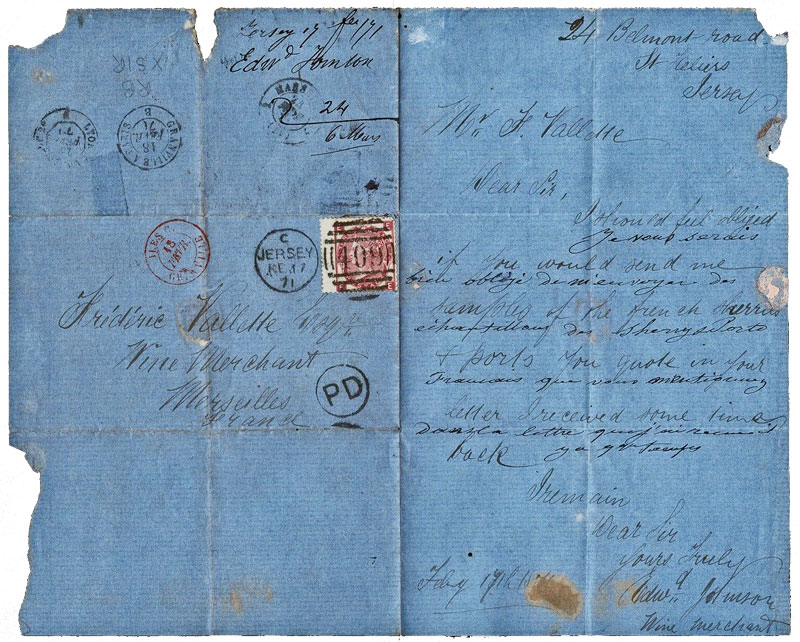 Jersey 17 1871
Edwd Johnson
24
6 Mars
RB
X SIR
LYON
GRANVILLE A PARIS
18
FEVR
71
B
MARS
18
FEVR
GRANVILLE
C
JERSEY
FE 17
71
409
Frédéric Vallette Esqr
Wine Merchant
Merseilles
France
PD
24 Belmont road
St Heliers
Jersey
Mr F. Vallette
Dear Sir,
I should feel obliged
Je vous serais
if you would send me
bien obligé de m'envoyer des
samples of the french sherries
échantillons des Sherrys & Porto
& ports you quote in your
Francais que vous mentionnez
letter I received some time
dans la lettre que j'ai
back
Iremain
Dear Sir
Yours Truly
Feby 17th 1871
Edwd Johnson
Wine Merchant